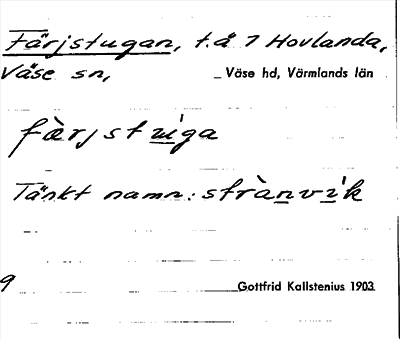 Färjstugan, t.å 7 Hovlanda,
Väse sn, Väse hd, Värmlands län
färjstùga
Tänkt namn: strànvìk
9 Gottfrid Kallstenius 1903